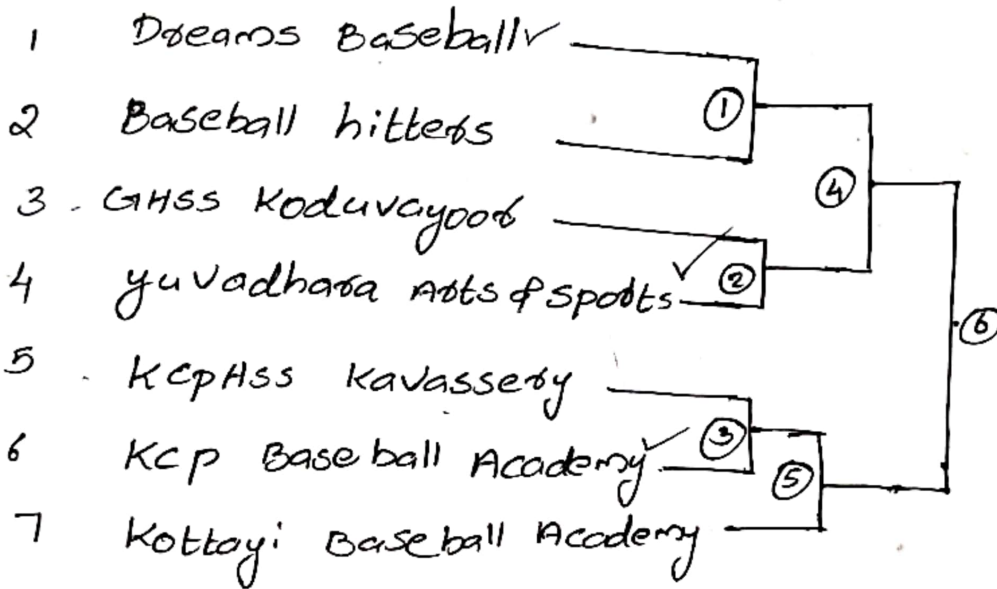 1 Dreams Baseball ✓
2 Baseball hitters
3 . GHSS Koduvayoor
4 yuvadhara Arts & Sports ✓
5 . KCpHss Kavassery
6 KCp Baseball Academy ✓
7 Kottayi Baseball Academy
1
2
3
4
5
6